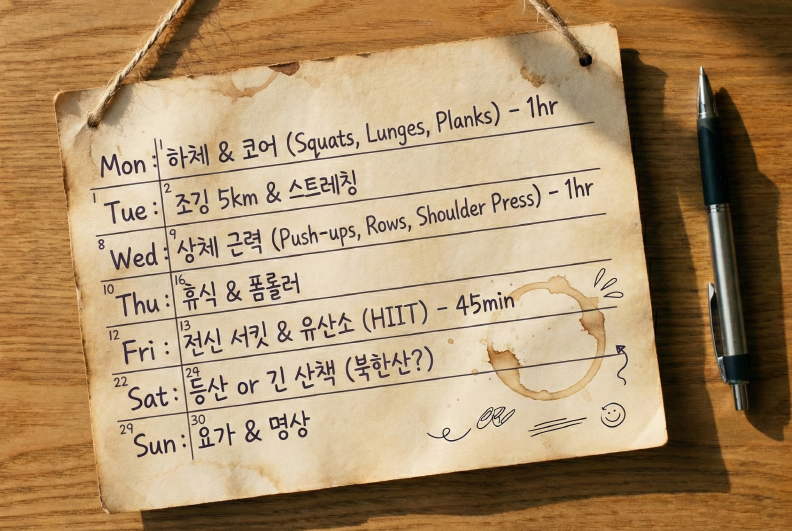 Mon: 1 하체 & 코어 (Squats, Lunges, Planks) - 1hr
1 Tue: 2 조깅 5km & 스트레칭
8 Wed: 9 상체 근력 (Push-ups, Rows, Shoulder Press) - 1hr
10 Thu: 16 휴식 & 폼롤러
12 Fri: 13 전신 서킷 & 유산소 (HIIT) - 45min
22 Sat: 24 등산 or 긴 산책 (북한산?)
29 Sun: 30 요가 & 명상